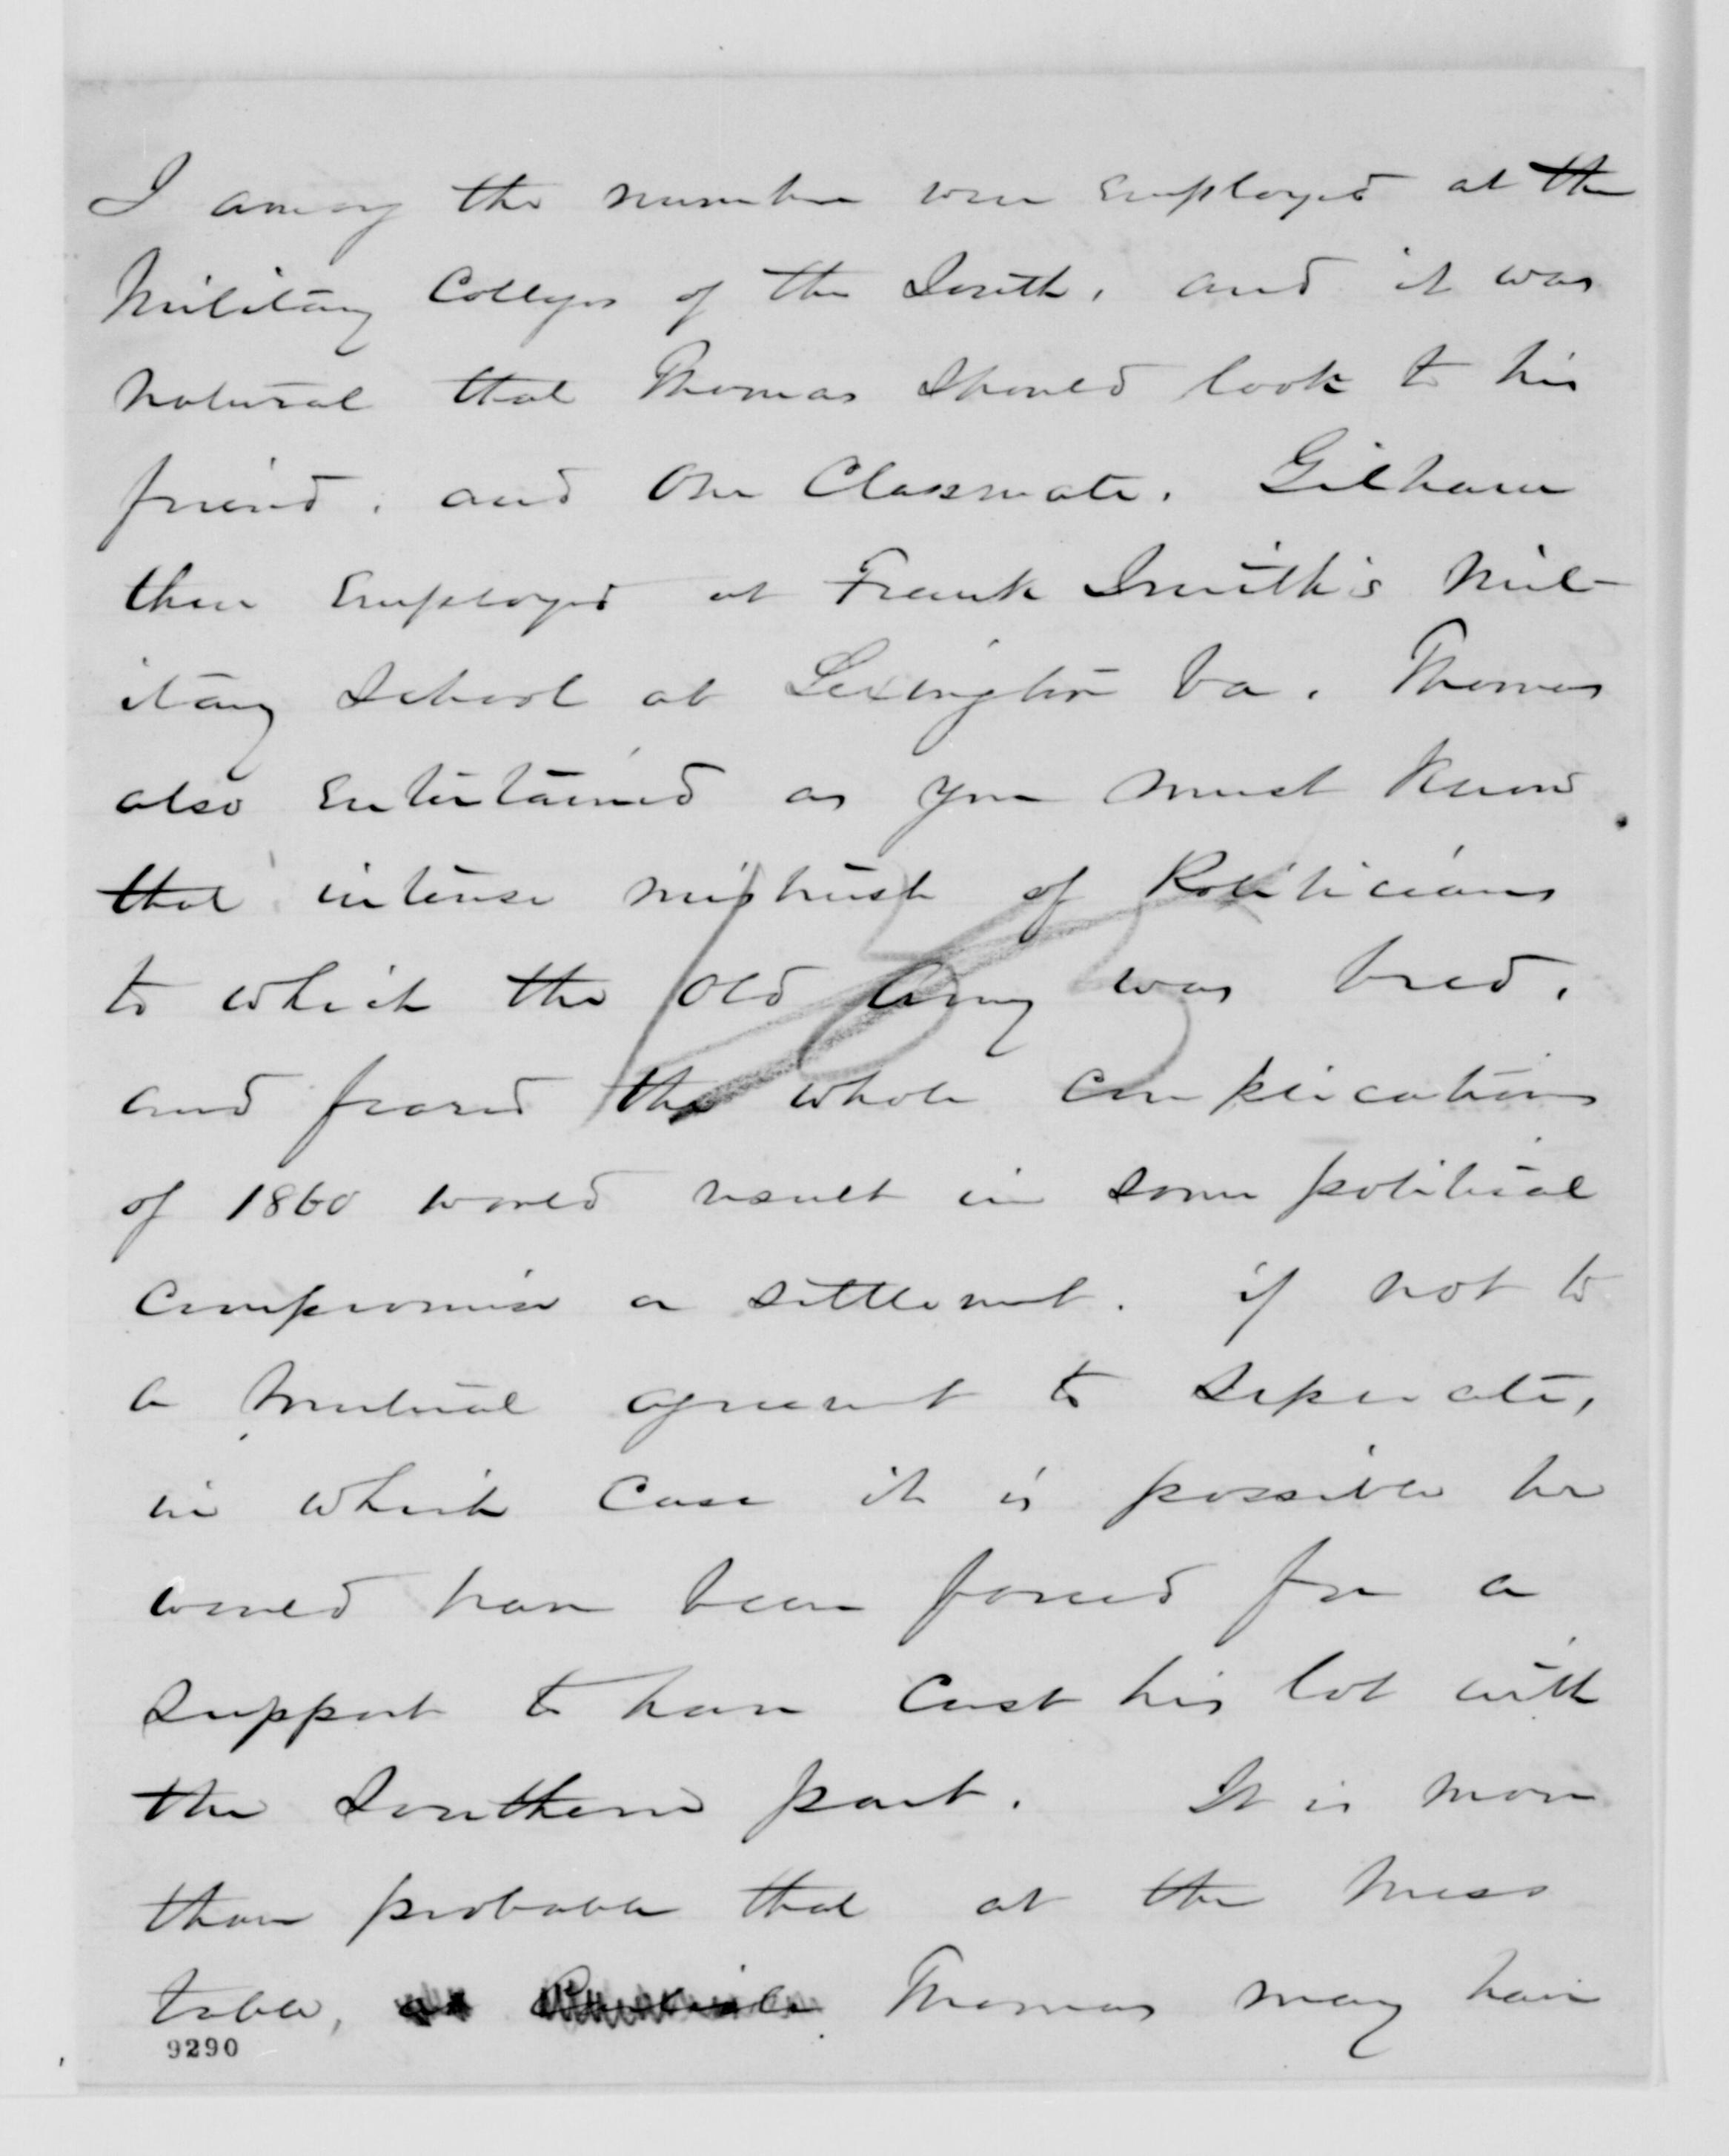 I among the number were employed at the
Military Colleges of the South, and it was
natural that Thomas should look to his
friend, and our Classmate, Gilham
then employed at Frank Smith's Mil-
itary School at Lexington Va. Thomas
also entertained as you must know
that intense mistrust of Politicians
to which the old Army was bred,
and feared the whole complications
of 1860 would result in some political
compromise or settlement, if not to
a mutual agreement to seperate,
in which case it is possible he
would have been forced for a
support to have cast his lot with
the Southern part. It is more
than probable that at the mess
table, Thomas may have
9290